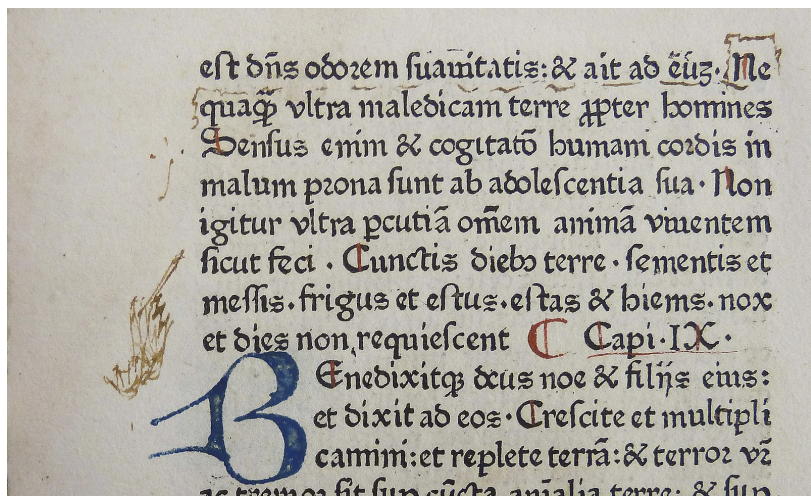 est dn̄s odorem suauitatis: & ait ad eūꝫ. Ne
quaqȝ̄ vltra maledicam terre ꝓpter homines
Sensus enim & cogitatō humani cordis in
malum prona sunt ab adolescentia sua. Non
igitur vltra ꝑcutiā om̄em animā viuentem
sicut feci. Cunctis diebꝰ terre. sementis et
messis. frigus et estus. estas & hiems. nox
et dies non requiescent ¶ Capi. IX.
BEnedixitqꝫ deus noe & filijs eius:
et dixit ad eos. Crescite et multipli
camini: et replete terrā: & terror vr̄
ac tremor sit suꝑ cūcta aīalia terre: & suꝑ